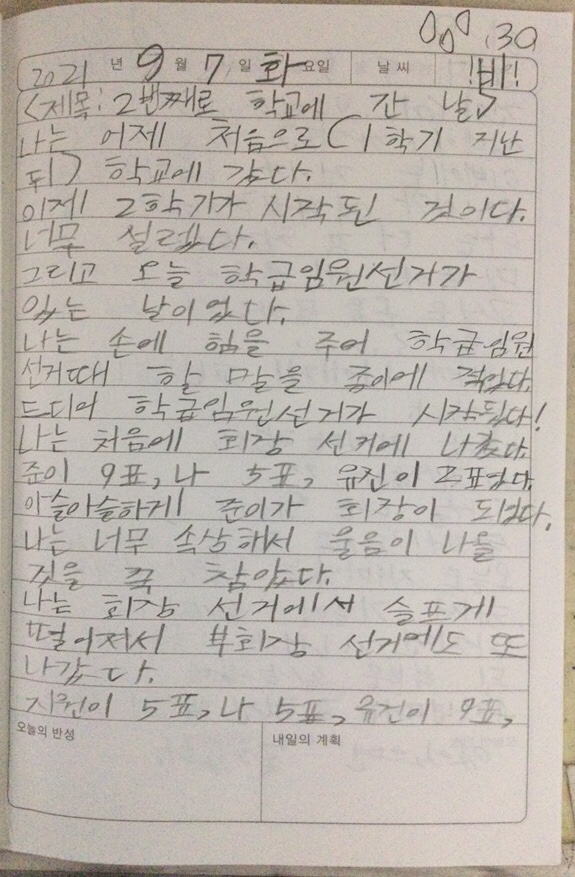 30
2021 년 9 월 7 일 화 요일 날 씨 !비!
<제목: 2번째로 학교에 간 날>
나는 어제 처음으로(1학기 지난
뒤) 학교에 갔다.
이제 2학기가 시작된 것이다.
너무 설렜다.
그리고 오늘 학급임원선거가
있는 날이었다.
나는 손에 힘을 주어 학급임원
선거때 할 말을 종이에 적었다.
드디어 학급임원선거가 시작됐다!
나는 처음에 회장 선거에 나갔다.
준이 9표, 나 5표, 유진이 2표였다.
아슬아슬하게 준이가 회장이 되었다.
나는 너무 속상해서 울음이 나올
것을 꾹 참았다.
나는 회장 선거에서 슬프게
떨어져서 부회장 선거에도 또
나갔다.
지원이 5표, 나 5표, 유진이 9표,
오늘의 반성 내일의 계획